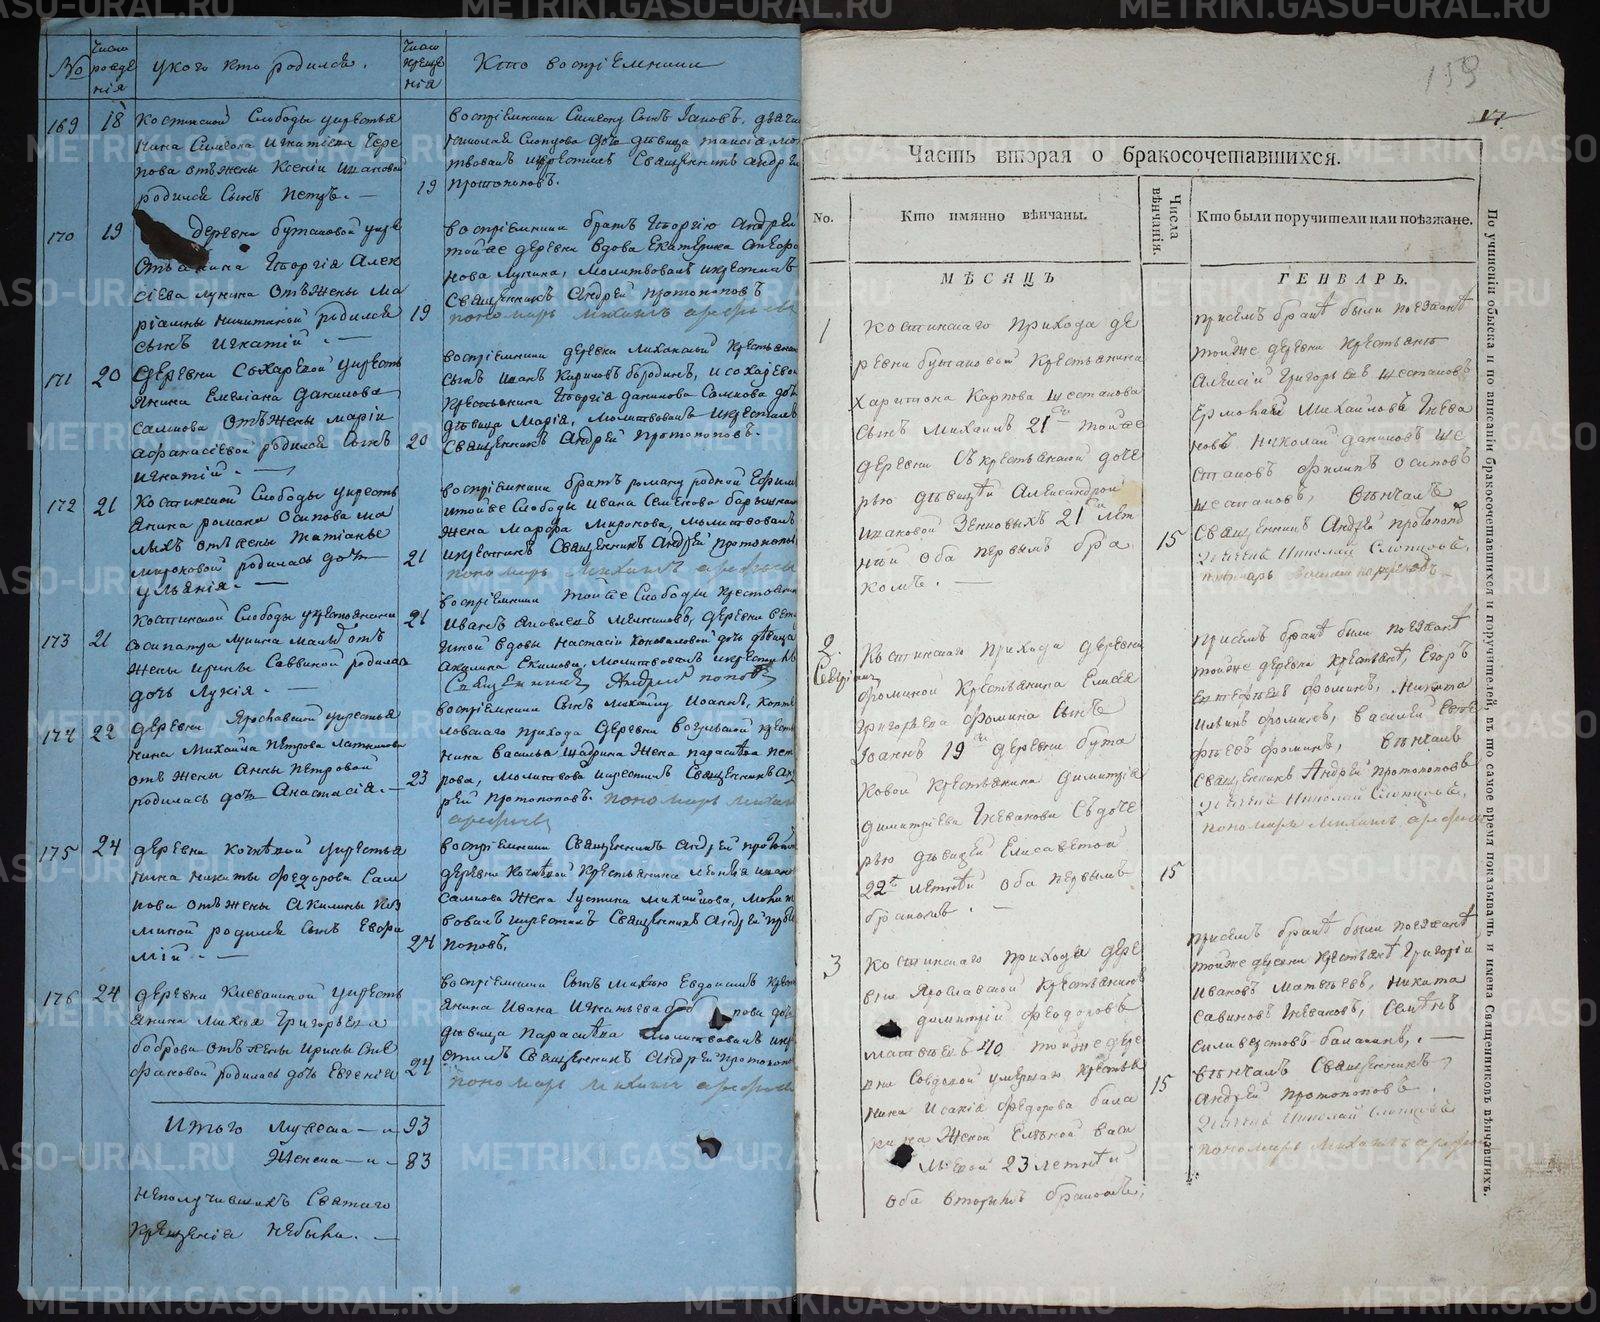 №
Число рожде нія
у кого кто родился.
Число креще нія
Кто воспріемники
169
18
Костинской Слободы у крестья
нина Симеона Игнатіева Чере
пова отъ жены Ксеніи Ивановой
родился сынъ Петръ. —
19
воспріемники Симеону сынъ Іаковъ, дьячка
Николая Слопцова дочь дѣвица Таисія мо
твовалъ и крестилъ Священникъ Андрей
Протопоповъ.
170
19
деревни Бутаковой у кре
стьянина Георгія Алек
сіева Лукина отъ жены Ма
ріамны Никитиной родился
сынъ Игнатій. —
19
воспріемники братъ Георгію Андрей
той же деревни вдова Екатерина
Лукина, молитвовалъ и крестилъ
Священникъ Андрей Протопоповъ
пономарь Михаилъ Арефьевъ
171
20
Деревни Сохаревой у кресть
янина Емеліана Данилова
Самкова отъ жены Маріи
Афанасіевой родился сынъ
Игнатій. —
20
воспріемники деревни крестьянина
сынъ Иванъ Кириловъ Бородинъ, и Сохаревой
крестьянина Георгія Данилова Самкова дочь
дѣвица Марія, молитвовалъ и крестилъ
Священникъ Андрей Протопоповъ.
172
21
Костинской Слободы у кресть
янина Романа Осипова Ма
лыхъ отъ жены Татіаны
Мироновой родилась дочь
Уліанія. —
21
воспріемники братъ Роману родной Ефимъ
и той же Слободы Ивана Семенова
жена Марфа Миронова, молитвовалъ
и крестилъ Священникъ Андрей Протопоповъ
пономарь Михаилъ Арефьевъ
173
21
Костинской Слободы у крестьянина
Сосипатра Лукина Малыхъ отъ
жены Ирины Саввиной родилась
дочь Лукія. —
21
воспріемники той же Слободы крестьянинъ
Иванъ Яковлевъ Мельниковъ, деревни
вдовы Настасіи Коноваловой дочь дѣвица
Акилина Екимова, молитвовалъ и крестилъ
Священникъ Андрей Попов
174
22
деревни Ярославской у крестья
нина Михаила Петрова
отъ жены Анны Петровой
родилась дочь Анастасія. —
23
воспріемники сынъ Михаилу Іоаннъ,
ловскаго прихода деревни крестья
нина Василья Шадрина жена Парасковья Пет
рова, молитвовалъ и крестилъ Священникъ Анд
рей Протопоповъ. пономарь Михаилъ
Арефьевъ
175
24
деревни Кочневой у крестья
нина Никиты Федорова Сам
кова отъ жены Акилины Коз
миной родился сынъ Евфи
мій. —
24
воспріемники Священникъ Андрей Протопоповъ
деревни Кочневой крестьянина Ивано
Самкова жена Іустина Михайлова, молит
вовалъ и крестилъ Священникъ Андрей Прото
поповъ.
176
24
деревни Клевакиной у кресть
янина Михея Григорьева
Боброва отъ жены Ирины
родилась дочь Евгенія
24
воспріемники сынъ Михею Евдокимъ кресть
янина Ивана Игнатьева
дѣвица Парасковья молитвовалъ и кре
стилъ Священникъ Андрей Протопоповъ
пономарь Михаилъ Арефьевъ
Итого Мужеска — и — 93
Женска — и — 83
Неполучившихъ Святаго
Крещенія небыло. —
159
17
Часть вторая о бракосочетавшихся.
No.
Кто имянно вѣнчаны.
Числа вѣнчанія.
Кто были поручители или поѣзжане.
МѢСЯЦЪ
ГЕНВАРЬ.
1
Костинскаго прихода де
ревни Бутаковой крестьянина
Харитона Карпова Шестакова
сынъ Михаилъ 21 той же
деревни съ крестьянской доче
рью дѣвицей Александрой
Ивановой Зенковыхъ 21 лѣт
ней оба первымъ бра
комъ. —
15
при семъ бракѣ были поезжанѣ
той же деревни крестьянѣ
Алексій Григорьевъ Шестаковъ
Ермолай Михайловъ Клева
кинъ Николай Даниловъ Ше
стаковъ Филипъ Осиповъ
Шестаковъ, вѣнчалъ
Священникъ Андрей Протопопов
дьячекъ Николай Слопцовъ,
пономарь
2.
Костинскаго прихода деревни
Фоминой крестьянина Елисея
Григорьева Фомина сынъ
Іоаннъ 19 деревни Бута
ковой крестьянина Димитрія
Димитріева Клевакина съ доче
рью дѣвицей Елисаветой
22 лѣтней оба первымъ
бракомъ. —
15
при семъ бракѣ были поезжанѣ
той же деревни крестьянѣ, Егоръ
Фоминъ, Никита
Фоминъ, Василей
Фоминъ, вѣнчалъ
Священникъ Андрей Протопоповъ
дьячекъ Николай Слопцовъ,
пономарь Михаилъ Арефьевъ
3
Костинскаго прихода дере
вни Ярославской крестьянинъ
Димитрій Феодоровъ
Матвѣевъ 40 той же дере
вни съ вдовой умершаго крестья
нина Исакія Федорова Бала
кина женой Еленой Васи
льевой 23 лѣтней
оба вторымъ бракомъ;
15
при семъ бракѣ были поезжанѣ
той же деревни крестьянѣ Григорій
Ивановъ Матвѣевъ, Никита
Савиновъ Клевакинъ, Семенъ
Силиверстовъ Балакинъ, —
вѣнчалъ Священникъ
Андрей Протопоповъ.
дьячекъ Николай Слопцовъ
пономарь Михаилъ Арефьевъ
По учиненіи обыска и по вписаніи бракосочетавшихся и поручителей, въ то самое время показывать и имена Священниковъ вѣнчавшихъ.
METRIKI.GASO-URAL.RU